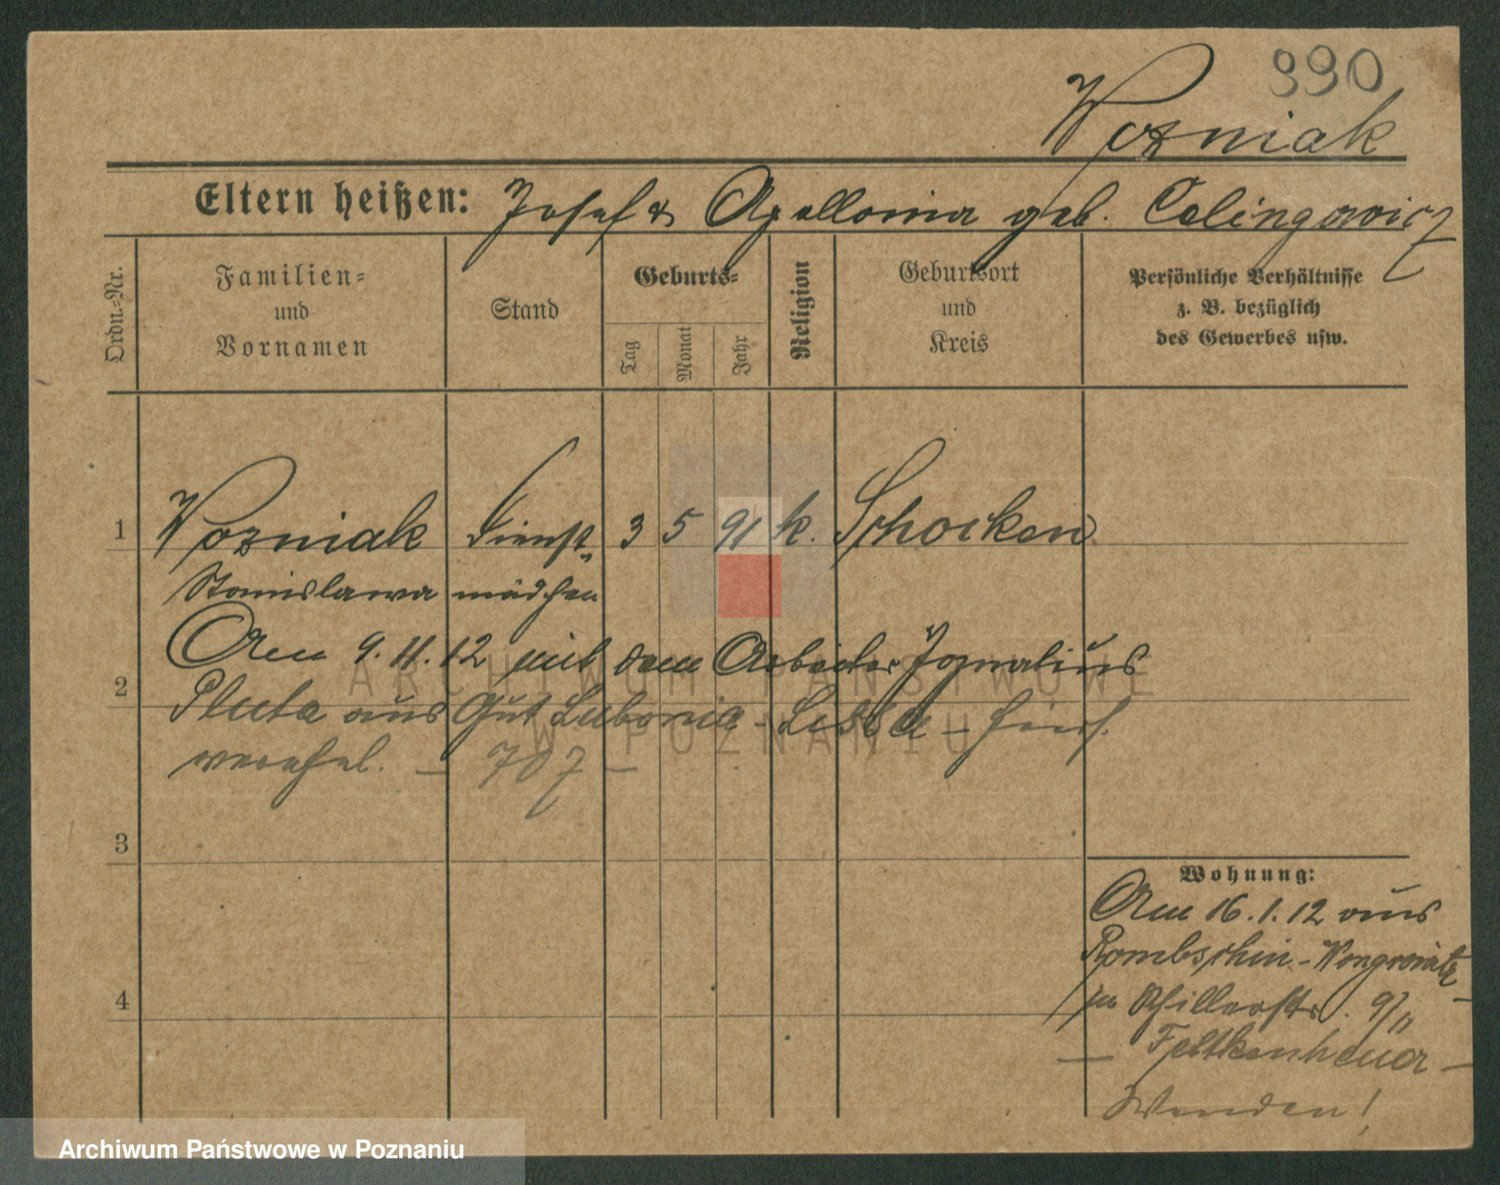 990
Wozniak
Eltern heißen: Josef & Apollonia geb. Celingowicz
Ordn.-Nr.
Familien-
und
Vornamen
Stand
Geburts-
Tag
Monat
Jahr
Religion
Geburtsort
und
Kreis
Persönliche Verhältnisse
z. B. bezüglich
des Gewerbes usw.
1 Wozniak Dienst- 3 5 91 k. Schocken
Stanislawa mädchen
Am 9.11.12 mit dem Arbeiter Ignatius
2
Pluta aus Gut Lubonia - Lissa - hier
verehel. - 707 -
3
4
Wohnung:
Am 16.1.12 aus
Rombschin - Wongrowitz
in Schillerstr. 9/II
- Feltkenheuer -
Wenden!
ARCHIWUM PAŃSTWOWE
W POZNANIU
Archiwum Państwowe w Poznaniu